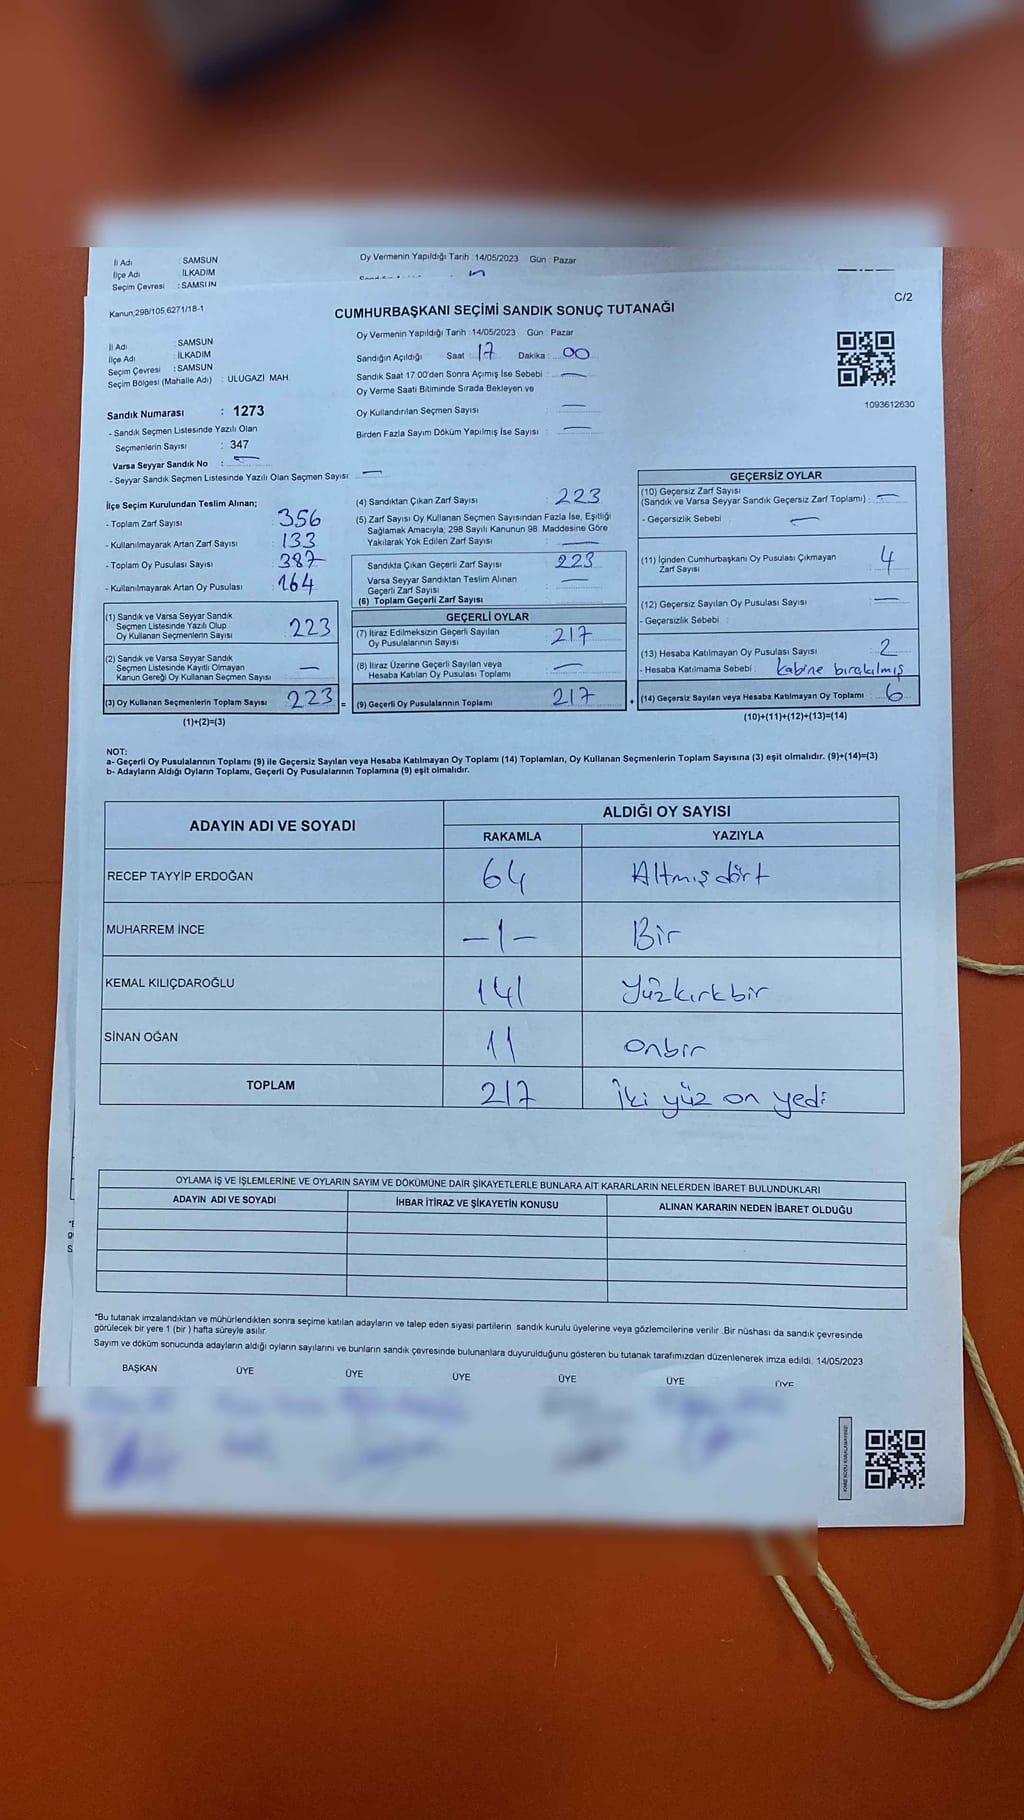 İl Adı : SAMSUN
İlçe Adı : İLKADIM
Seçim Çevresi : SAMSUN
Oy Vermenin Yapıldığı Tarih : 14/05/2023 Gün : Pazar
Kanun,298/105,6271/18-1
CUMHURBAŞKANI SEÇİMİ SANDIK SONUÇ TUTANAĞI
C/2
İl Adı : SAMSUN
İlçe Adı : İLKADIM
Seçim Çevresi : SAMSUN
Seçim Bölgesi (Mahalle Adı) : ULUGAZİ MAH.
Oy Vermenin Yapıldığı Tarih : 14/05/2023 Gün : Pazar
Sandığın Açıldığı Saat : 17 Dakika : 00
Sandık Saat 17:00'den Sonra Açımış İse Sebebi : —
Oy Verme Saati Bitiminde Sırada Bekleyen ve
Oy Kullandırılan Seçmen Sayısı : —
Birden Fazla Sayım Döküm Yapılmış İse Sayısı : —
1093612630
Sandık Numarası : 1273
- Sandık Seçmen Listesinde Yazılı Olan
Seçmenlerin Sayısı : 347
Varsa Seyyar Sandık No : —
- Seyyar Sandık Seçmen Listesinde Yazılı Olan Seçmen Sayısı: —
İlçe Seçim Kurulundan Teslim Alınan;
- Toplam Zarf Sayısı : 356
- Kullanılmayarak Artan Zarf Sayısı : 133
- Toplam Oy Pusulası Sayısı : 387
- Kullanılmayarak Artan Oy Pusulası : 164
(1) Sandık ve Varsa Seyyar Sandık
Seçmen Listesinde Yazılı Olup
Oy Kullanan Seçmenlerin Sayısı : 223
(2) Sandık ve Varsa Seyyar Sandık
Seçmen Listesinde Kayıtlı Olmayan
Kanun Gereği Oy Kullanan Seçmen Sayısı : —
(3) Oy Kullanan Seçmenlerin Toplam Sayısı : 223 =
(1)+(2)=(3)
(4) Sandıktan Çıkan Zarf Sayısı : 223
(5) Zarf Sayısı Oy Kullanan Seçmen Sayısından Fazla İse, Eşitliği
Sağlamak Amacıyla; 298 Sayılı Kanunun 98. Maddesine Göre
Yakılarak Yok Edilen Zarf Sayısı : —
Sandıkta Çıkan Geçerli Zarf Sayısı : 223
Varsa Seyyar Sandıktan Teslim Alınan
Geçerli Zarf Sayısı : —
(6) Toplam Geçerli Zarf Sayısı
GEÇERLİ OYLAR
(7) İtiraz Edilmeksizin Geçerli Sayılan
Oy Pusulalarının Sayısı : 217
(8) İtiraz Üzerine Geçerli Sayılan veya
Hesaba Katılan Oy Pusulası Toplamı : —
(9) Geçerli Oy Pusulalarının Toplamı : 217 +
GEÇERSİZ OYLAR
(10) Geçersiz Zarf Sayısı
(Sandık ve Varsa Seyyar Sandık Geçersiz Zarf Toplamı) : —
- Geçersizlik Sebebi : —
(11) İçinden Cumhurbaşkanı Oy Pusulası Çıkmayan
Zarf Sayısı : 4
(12) Geçersiz Sayılan Oy Pusulası Sayısı : —
- Geçersizlik Sebebi :
(13) Hesaba Katılmayan Oy Pusulası Sayısı : 2
- Hesaba Katılmama Sebebi : kabine bırakılmış
(14) Geçersiz Sayılan veya Hesaba Katılmayan Oy Toplamı : 6
(10)+(11)+(12)+(13)=(14)
NOT:
a- Geçerli Oy Pusulalarının Toplamı (9) ile Geçersiz Sayılan veya Hesaba Katılmayan Oy Toplamı (14) Toplamları, Oy Kullanan Seçmenlerin Toplam Sayısına (3) eşit olmalıdır. (9)+(14)=(3)
b- Adayların Aldığı Oyların Toplamı, Geçerli Oy Pusulalarının Toplamına (9) eşit olmalıdır.
ADAYIN ADI VE SOYADI ALDIĞI OY SAYISI
RAKAMLA YAZIYLA
RECEP TAYYİP ERDOĞAN 64 Altmış dört
MUHARREM İNCE -1- Bir
KEMAL KILIÇDAROĞLU 141 Yüzkırkbir
SİNAN OĞAN 11 onbir
TOPLAM 217 İki yüz on yedi
OYLAMA İŞ VE İŞLEMLERİNE VE OYLARIN SAYIM VE DÖKÜMÜNE DAİR ŞİKAYETLERLE BUNLARA AİT KARARLARIN NELERDEN İBARET BULUNDUKLARI
ADAYIN ADI VE SOYADI İHBAR İTİRAZ VE ŞİKAYETİN KONUSU ALINAN KARARIN NEDEN İBARET OLDUĞU
*Bu tutanak imzalandıktan ve mühürlendikten sonra seçime katılan adayların ve talep eden siyasi partilerin sandık kurulu üyelerine veya gözlemcilerine verilir .Bir nüshası da sandık çevresinde
görülecek bir yere 1 (bir ) hafta süreyle asılır.
Sayım ve döküm sonucunda adayların aldığı oyların sayılarını ve bunların sandık çevresinde bulunanlara duyurulduğunu gösteren bu tutanak tarafımızdan düzenlenerek imza edildi. 14/05/2023
BAŞKAN ÜYE ÜYE ÜYE ÜYE ÜYE ÜYE